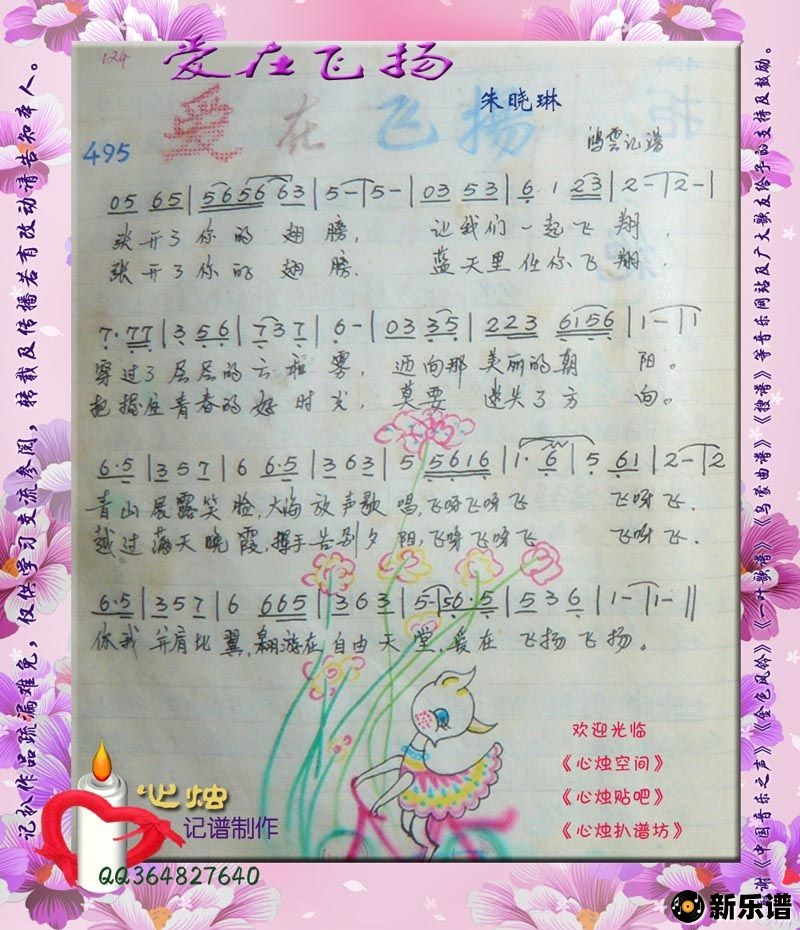 124
爱在飞扬
爱在飞揚
朱晓琳
495
鸿雲记谱
05 65 | 565663 | 5 - | 5 - | 03 53 | 6 1 23 | 2 - | 2 - |
张开了你的翅膀, 让我们一起飞翔,
张开了你的翅膀. 蓝天里任你飞翔.
7·77 | 3 56 | 7 3 7 | 6 - | 03 35 | 223 6156 | 1 - | 1
穿过了层层的云和雾, 迈向那美丽的朝阳。
把握住青春的好时光, 莫要迷失了方向。
6·5 | 3 5 7 | 6 6·5 | 3 6 3 | 5 5616 | 1· 6 | 5 61 | 2 - | 2
青山展露笑脸,大海放声歌唱,飞呀飞呀飞 飞呀飞.
越过满天晚霞,挥手告别夕阳,飞呀飞呀飞 飞呀飞.
6·5 | 3 5 7 | 6 665 | 3 6 3 | 5 - | 56·5 | 5 3 6 | 1 - | 1 - ||
你我并肩比翼,翱游在自由天堂,爱在飞扬飞扬。
欢迎光临
《心烛空间》
《心烛贴吧》
《心烛扒谱坊》
心烛
记谱制作
QQ364827640
记扒作品疏漏难免，仅供学习交流参阅，转载及传播若有改动请告知本人。
谢《中国音乐之声》《金色风铃》《一叶歌谱》《乌蒙曲谱》《搜谱》等音乐网站及广大歌友给予的支持及鼓励。
新乐谱